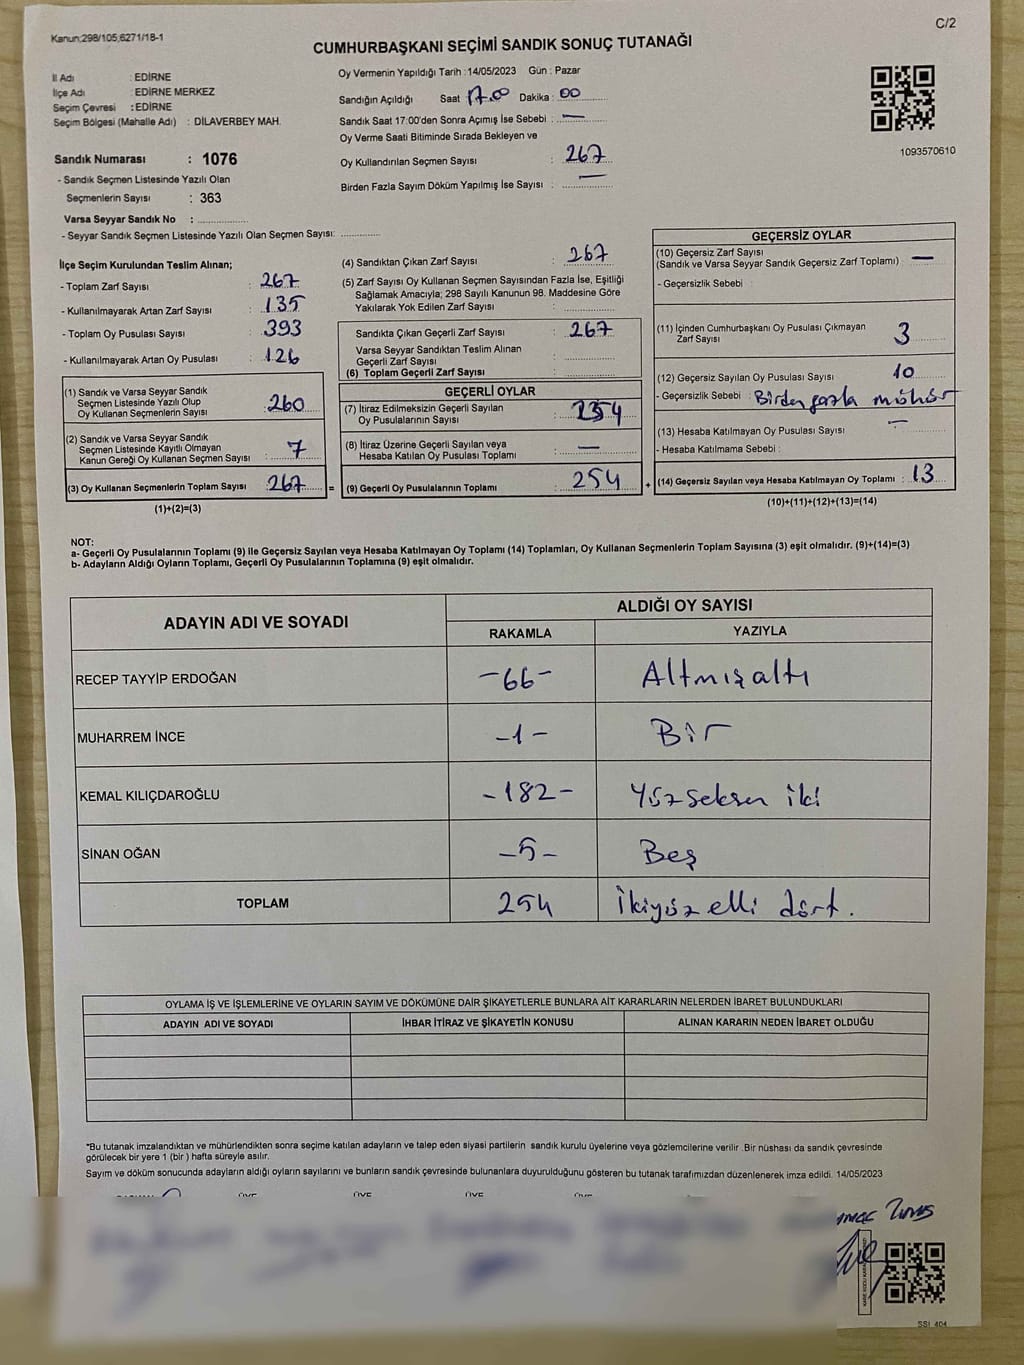 C/2
Kanun;298/105,6271/18-1
CUMHURBAŞKANI SEÇİMİ SANDIK SONUÇ TUTANAĞI
İl Adı : EDİRNE
İlçe Adı : EDİRNE MERKEZ
Seçim Çevresi : EDİRNE
Seçim Bölgesi (Mahalle Adı) : DİLAVERBEY MAH.
Sandık Numarası : 1076
- Sandık Seçmen Listesinde Yazılı Olan
Seçmenlerin Sayısı : 363
Varsa Seyyar Sandık No : ..................
- Seyyar Sandık Seçmen Listesinde Yazılı Olan Seçmen Sayısı: ..............
Oy Vermenin Yapıldığı Tarih :14/05/2023 Gün : Pazar
Sandığın Açıldığı Saat 17.00 Dakika : 00
Sandık Saat 17:00'den Sonra Açımış İse Sebebi : —
Oy Verme Saati Bitiminde Sırada Bekleyen ve
Oy Kullandırılan Seçmen Sayısı : 267
Birden Fazla Sayım Döküm Yapılmış İse Sayısı : —
1093570610
İlçe Seçim Kurulundan Teslim Alınan;
- Toplam Zarf Sayısı : 267
- Kullanılmayarak Artan Zarf Sayısı : 135
- Toplam Oy Pusulası Sayısı : 393
- Kullanılmayarak Artan Oy Pusulası : 126
(1) Sandık ve Varsa Seyyar Sandık
Seçmen Listesinde Yazılı Olup
Oy Kullanan Seçmenlerin Sayısı : 260
(2) Sandık ve Varsa Seyyar Sandık
Seçmen Listesinde Kayıtlı Olmayan
Kanun Gereği Oy Kullanan Seçmen Sayısı : 7
(3) Oy Kullanan Seçmenlerin Toplam Sayısı : 267 =
(1)+(2)=(3)
(4) Sandıktan Çıkan Zarf Sayısı : 267
(5) Zarf Sayısı Oy Kullanan Seçmen Sayısından Fazla İse, Eşitliği
Sağlamak Amacıyla; 298 Sayılı Kanunun 98. Maddesine Göre
Yakılarak Yok Edilen Zarf Sayısı :
Sandıkta Çıkan Geçerli Zarf Sayısı : 267
Varsa Seyyar Sandıktan Teslim Alınan
Geçerli Zarf Sayısı :
(6) Toplam Geçerli Zarf Sayısı :
GEÇERLİ OYLAR
(7) İtiraz Edilmeksizin Geçerli Sayılan
Oy Pusulalarının Sayısı : 254
(8) İtiraz Üzerine Geçerli Sayılan veya
Hesaba Katılan Oy Pusulası Toplamı : —
(9) Geçerli Oy Pusulalarının Toplamı : 254 +
GEÇERSİZ OYLAR
(10) Geçersiz Zarf Sayısı
(Sandık ve Varsa Seyyar Sandık Geçersiz Zarf Toplamı) : —
- Geçersizlik Sebebi :
(11) İçinden Cumhurbaşkanı Oy Pusulası Çıkmayan
Zarf Sayısı 3
(12) Geçersiz Sayılan Oy Pusulası Sayısı : 10
- Geçersizlik Sebebi : Birden fazla mühür
(13) Hesaba Katılmayan Oy Pusulası Sayısı : —
- Hesaba Katılmama Sebebi :
(14) Geçersiz Sayılan veya Hesaba Katılmayan Oy Toplamı : 13
(10)+(11)+(12)+(13)=(14)
NOT:
a- Geçerli Oy Pusulalarının Toplamı (9) ile Geçersiz Sayılan veya Hesaba Katılmayan Oy Toplamı (14) Toplamları, Oy Kullanan Seçmenlerin Toplam Sayısına (3) eşit olmalıdır. (9)+(14)=(3)
b- Adayların Aldığı Oyların Toplamı, Geçerli Oy Pusulalarının Toplamına (9) eşit olmalıdır.
ADAYIN ADI VE SOYADI ALDIĞI OY SAYISI
RAKAMLA YAZIYLA
RECEP TAYYİP ERDOĞAN -66- Altmışaltı
MUHARREM İNCE -1- Bir
KEMAL KILIÇDAROĞLU -182- Yüzseksen iki
SİNAN OĞAN -5- Beş
TOPLAM 254 İkiyüz elli dört.
OYLAMA İŞ VE İŞLEMLERİNE VE OYLARIN SAYIM VE DÖKÜMÜNE DAİR ŞİKAYETLERLE BUNLARA AİT KARARLARIN NELERDEN İBARET BULUNDUKLARI
ADAYIN ADI VE SOYADI İHBAR İTİRAZ VE ŞİKAYETİN KONUSU ALINAN KARARIN NEDEN İBARET OLDUĞU
*Bu tutanak imzalandıktan ve mühürlendikten sonra seçime katılan adayların ve talep eden siyasi partilerin sandık kurulu üyelerine veya gözlemcilerine verilir .Bir nüshası da sandık çevresinde
görülecek bir yere 1 (bir ) hafta süreyle asılır.
Sayım ve döküm sonucunda adayların aldığı oyların sayılarını ve bunların sandık çevresinde bulunanlara duyurulduğunu gösteren bu tutanak tarafımızdan düzenlenerek imza edildi. 14/05/2023
ÜYE ÜYE ÜYE
SSI_404